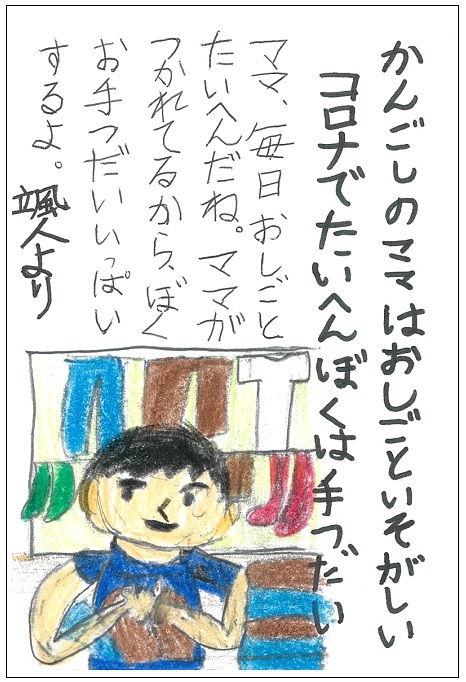 かんごしのママはおしごといそがしい
コロナでたいへんぼくは手つだい
ママ、毎日おしごと
たいへんだね。ママが
つかれてるから、ぼく
お手つだいいっぱい
するよ。颯人より